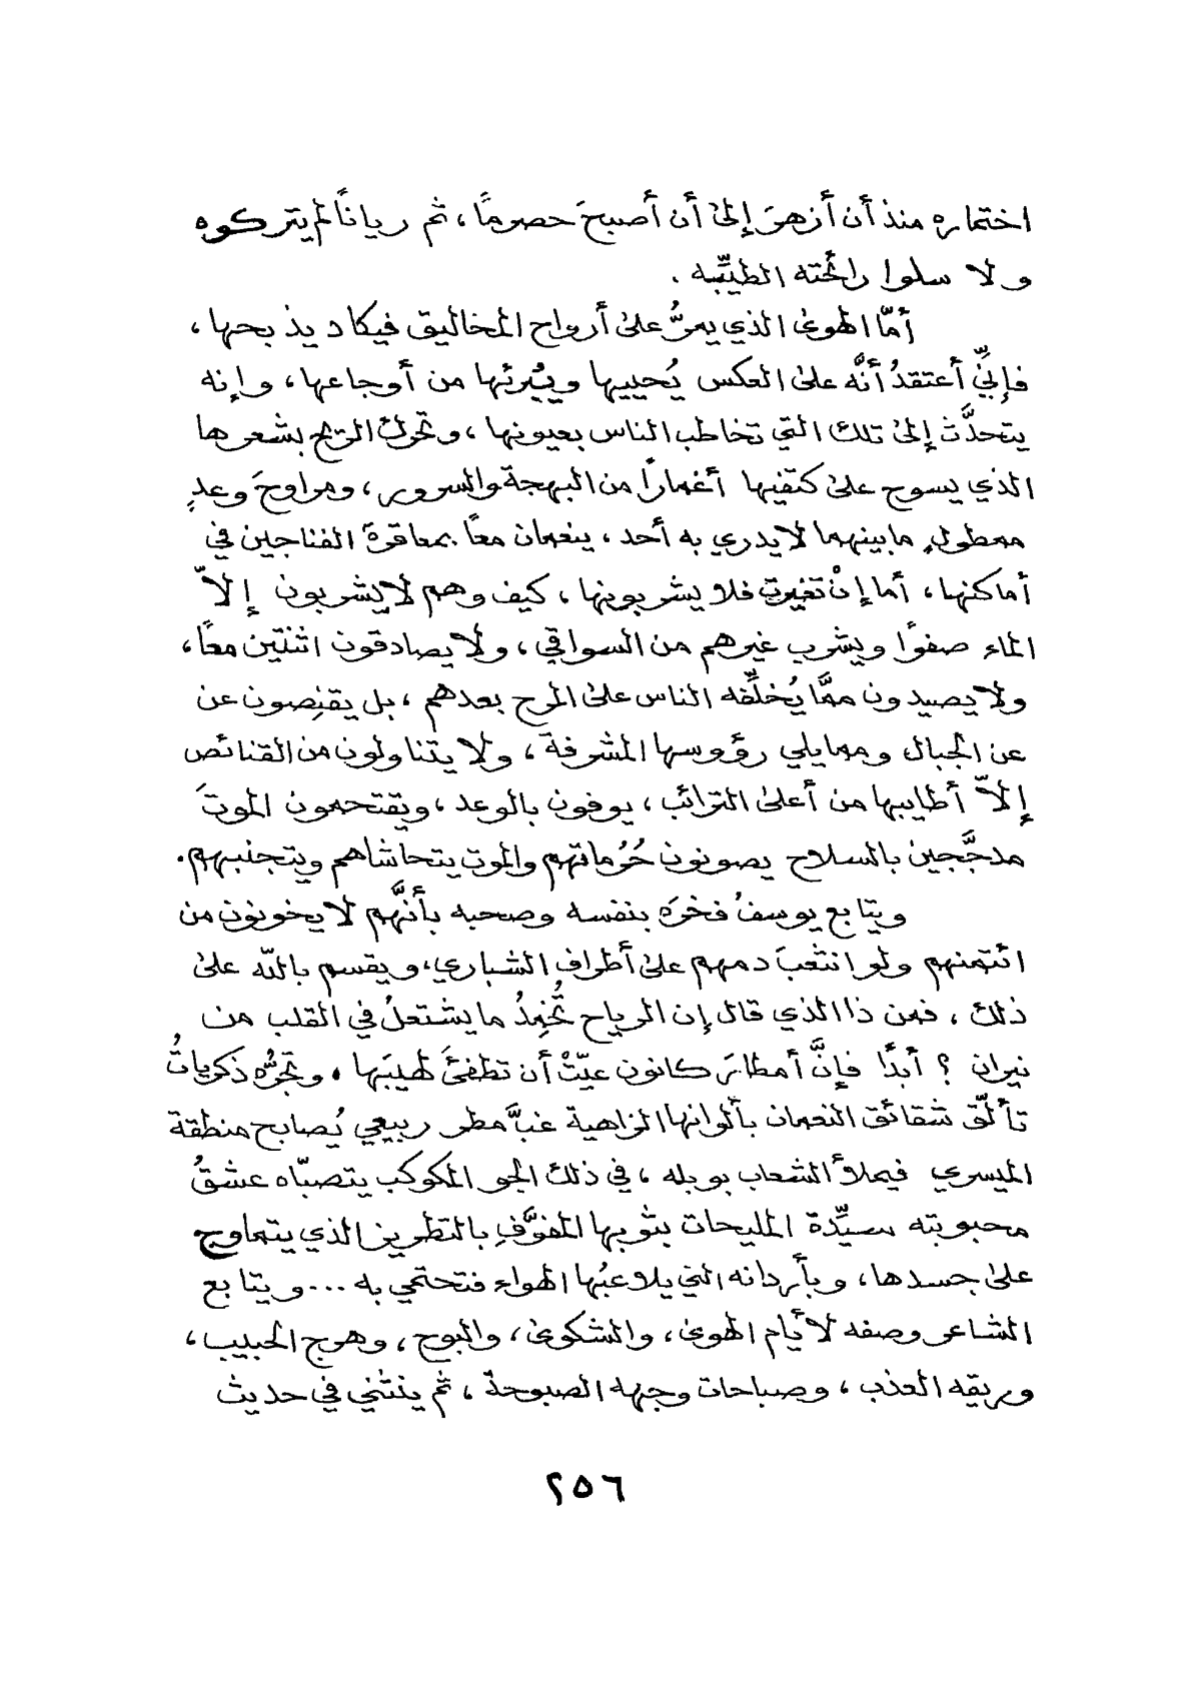 اختماره منذ أن أزهرَ إلى أن أصبحَ حصرمًا، ثم رياناً لم يتركوه
ولا سلوا رائحته الطيِّبه .
أمّا الهوى الذي يمرُّ على أرواح المخاليق فيكاد يذبحها،
فإنِّي أعتقدُ أنَّه على العكس يُحييها ويُبْرئها من أوجاعها، وإنه
يتحدَّث إلى تلك التي تخاطب الناس بعيونها، وتحرك الريح بشعرها
الذي يسوح على كتفيها أغمارًا من البهجة والسرور، ومراوحَ وعدٍ
ممطولٍ مابينهما لا يدري به أحد، ينعمان معًا بمعاقرة الفناجين في
أماكنها، أما إنْ تغيرت فلا يشربونها، كيف وهم لا يشربون إلاّ
الماء صفوًا ويشرب غيرهم من السواقي، ولا يصادقون اثنتين معًا،
ولا يصيدون ممَّا يُخلِّفه الناس على المرح بعدهم، بل يقنِصون عن
عن الجبال ومما يلي رؤوسها المشرفة، ولا يتناولون من القنائص
إلاّ أطايبها من أعلى الترائب، يوفون بالوعد، ويقتحمون الموتَ
مدجَّجين بالسلاح يصونون حُرُماتهم والموت يتحاشاهم ويتجنبهم.
ويتابع يوسفُ فخرَه بنفسه وصحبه بأنَّهم لا يخونون من
ائتمنهم ولو انثعبَ دمهم على أطراف الشباري، ويقسم بالله على
ذلك، فمن ذا الذي قال إن الرياح تُخمِدُ ما يشتعلُ في القلب من
نيران ؟ أبدًا فإنَّ أمطارَ كانون عيّتْ أن تطفئَ لهيبَها، وتجرُّه ذكرياتُ
تألّق شقائق النعمان بألوانها الزاهية غبَّ مطر ربيعي يُصابح منطقة
الميسري فيملأ الشعاب بوبله، في ذلك الجو المكوكب يتصبّاه عشقُ
محبوبته سيِّدة المليحات بثوبها المفوَّفِ بالتطريز الذي يتماوج
على جسدها، وبأردانه التي يلاعبُها الهواء فتحتمي به ... ويتابع
الشاعر وصفه لأيام الهوى، والشكوى، والبوح، وهرج الحبيب،
وريقه العذب، وصباحات وجهه الصبوحة، ثم ينثني في حديث
٢٥٦